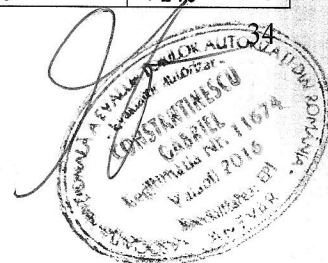 34
EVALUATORILOR AUTORIZAȚI DIN ROMÂNIA
Evaluator Autorizat
CONSTANTINESCU
GABRIEL
Legitimația Nr. 11674
Valabil 2016
Specializarea: EPI
ANEVAR